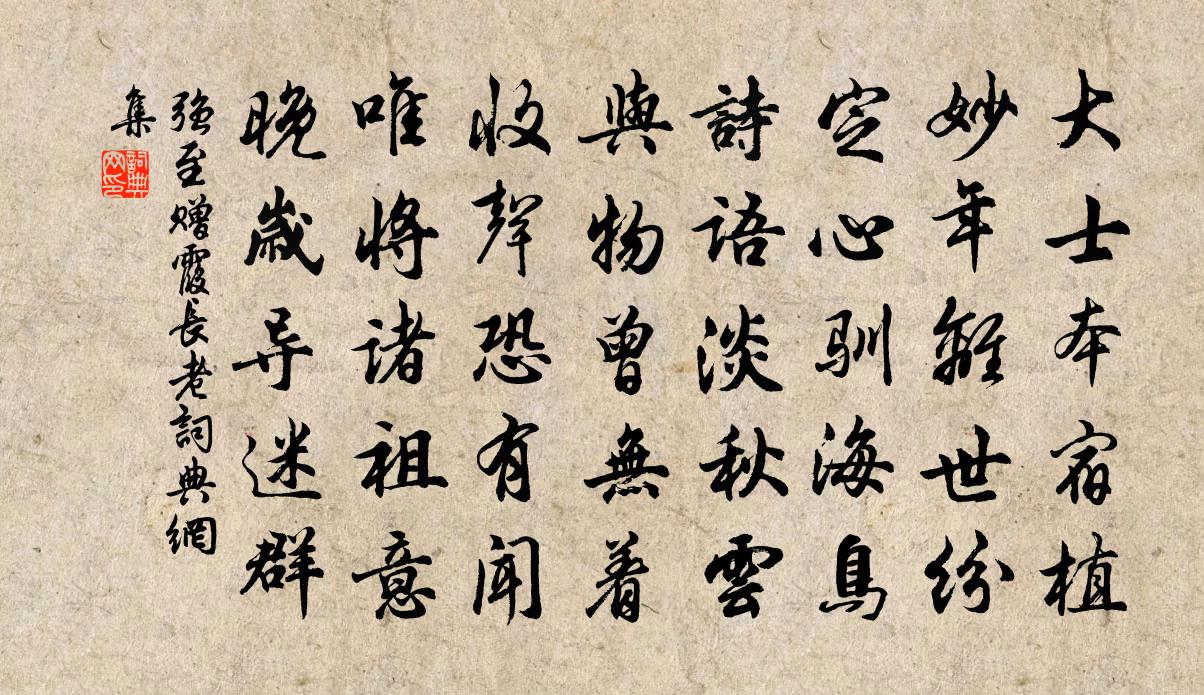 大士本宿植
妙年難世紛
定心馴海鳥
詩語淡秋雲
與物曾無着
收聲恐有聞
唯將諸祖意
晚歲导迷群
強至贈霞長老詞典網
集
詞典
网印